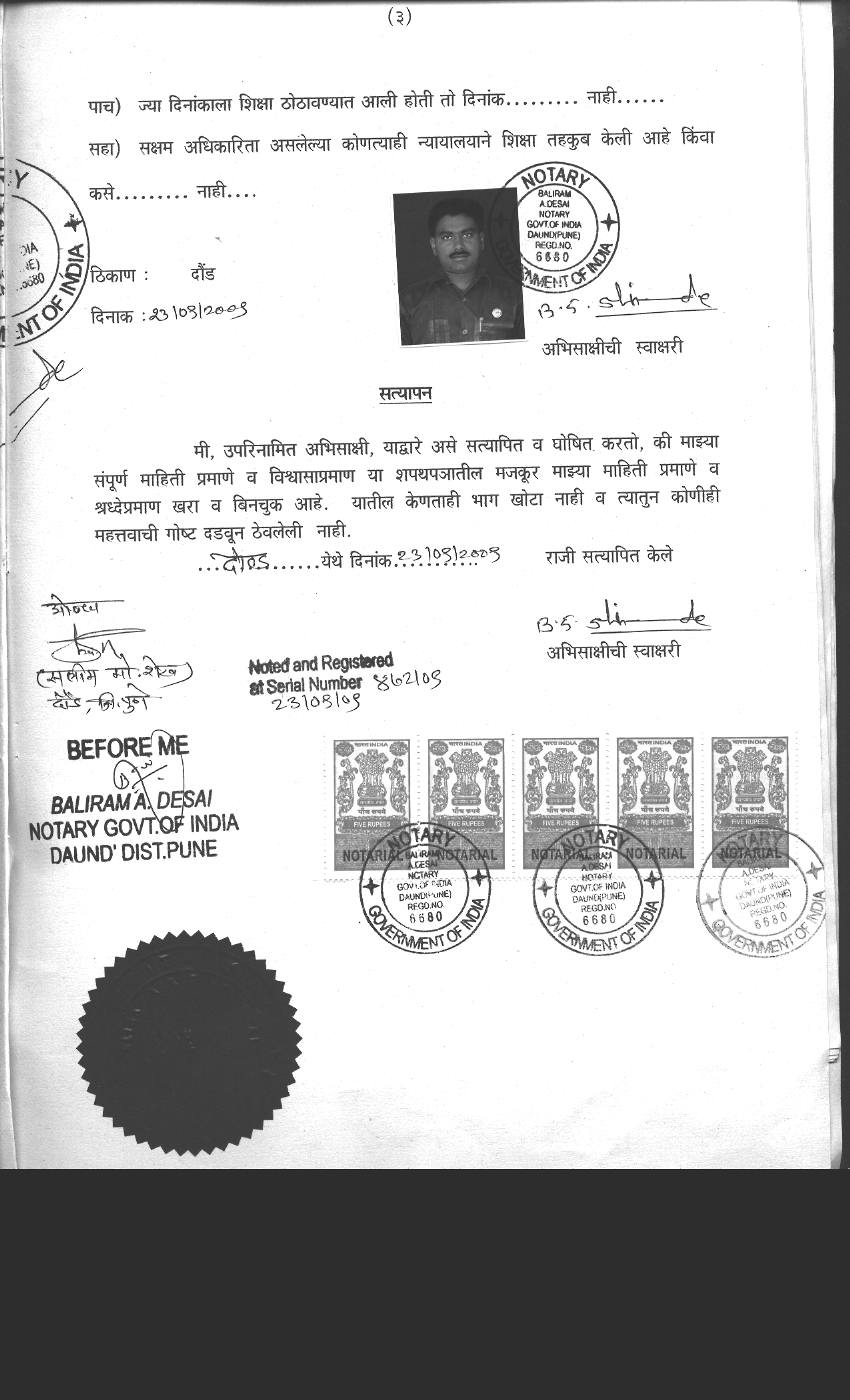 (३)
पाच) ज्या दिनांकाला शिक्षा ठोठावण्यात आली होती तो दिनांक......... नाही......
सहा) सक्षम अधिकारिता असलेल्या कोणत्याही न्यायालयाने शिक्षा तहकुब केली आहे किंवा
कसे......... नाही....
NOTARY
BALIRAM
A.DESAI
NOTARY
GOVT.OF INDIA
DAUND(PUNE)
REGD.NO.
6680
GOVERNMENT OF INDIA
ठिकाण : दौंड
दिनाक : 23/09/2009
B.S. Shinde
अभिसाक्षीची स्वाक्षरी
सत्यापन
मी, उपरिनामित अभिसाक्षी, याद्वारे असे सत्यापित व घोषित करतो, की माझ्या
संपूर्ण माहिती प्रमाणे व विश्वासाप्रमाण या शपथपत्रातील मजकूर माझ्या माहिती प्रमाणे व
श्रध्देप्रमाण खरा व बिनचुक आहे. यातील केणताही भाग खोटा नाही व त्यातुन कोणीही
महत्तवाची गोष्ट दडवून ठेवलेली नाही.
...दौण्ड......येथे दिनांक 23/09/2009 राजी सत्यापित केले
B.S. Shinde
अभिसाक्षीची स्वाक्षरी
(सलीम मो. शेख)
दौंड, जि. पुणे
Noted and Registered
at Serial Number 862/09
23/09/09
BEFORE ME
BALIRAM A. DESAI
NOTARY GOVT.OF INDIA
DAUND' DIST.PUNE
भारत INDIA भारत INDIA भारत INDIA भारत INDIA भारत INDIA
पाँच रुपये पाँच रुपये पाँच रुपये पाँच रुपये पाँच रुपये
FIVE RUPEES FIVE RUPEES FIVE RUPEES FIVE RUPEES FIVE RUPEES
NOTARIAL NOTARIAL NOTARIAL NOTARIAL NOTARIAL
NOTARY
BALIRAM
A.DESAI
NOTARY
GOVT.OF INDIA
DAUND(PUNE)
REGD.NO.
6680
GOVERNMENT OF INDIA
NOTARY
BALIRAM
A.DESAI
NOTARY
GOVT.OF INDIA
DAUND(PUNE)
REGD.NO
6680
GOVERNMENT OF INDIA
NOTARY
A.DESAI
NOTARY
GOVT.OF INDIA
DAUND(PUNE)
REGD.NO.
6680
GOVERNMENT OF INDIA